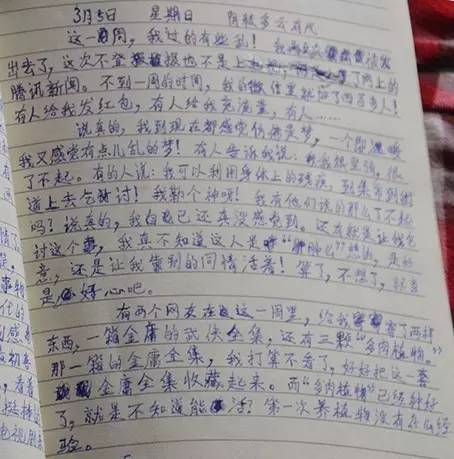 3月5日 星期日 阴转多云有风
这一周，我过的有些乱！我
出去了，这次不登 也不是上 了网上的
腾讯新闻。不到一周的时间，我的微信里就加了四百多人！
有人给我发红包，有人给我充流量，有人……
说真的，我到现在都感觉仿佛是梦，一个
我又感觉有点儿乱的梦！有人告诉我说：我很坚强，很
了不起。有的人说：我可以利用身体上的残疾，到集市到街
道上去乞讨！我勒个神呀！我有他们说的那么了不起
吗？说真的，我自己还真没感觉到。还有就是让我乞
讨这个事，我真不知道这人是 想的，是好
意，还是让我靠别的同情活着！算了，不想了，就当
是 好心吧。
有两个网友在这一周里，给我寄了两样
东西，一箱金庸的武侠全集，还有三颗“多肉植物。”
那一箱的金庸全集，我打算不看了，好好把这一套
金庸全集收藏起来。而“多肉植物”已经种好
了，就是不知道能 活！第一次养植物没有什么经
验。